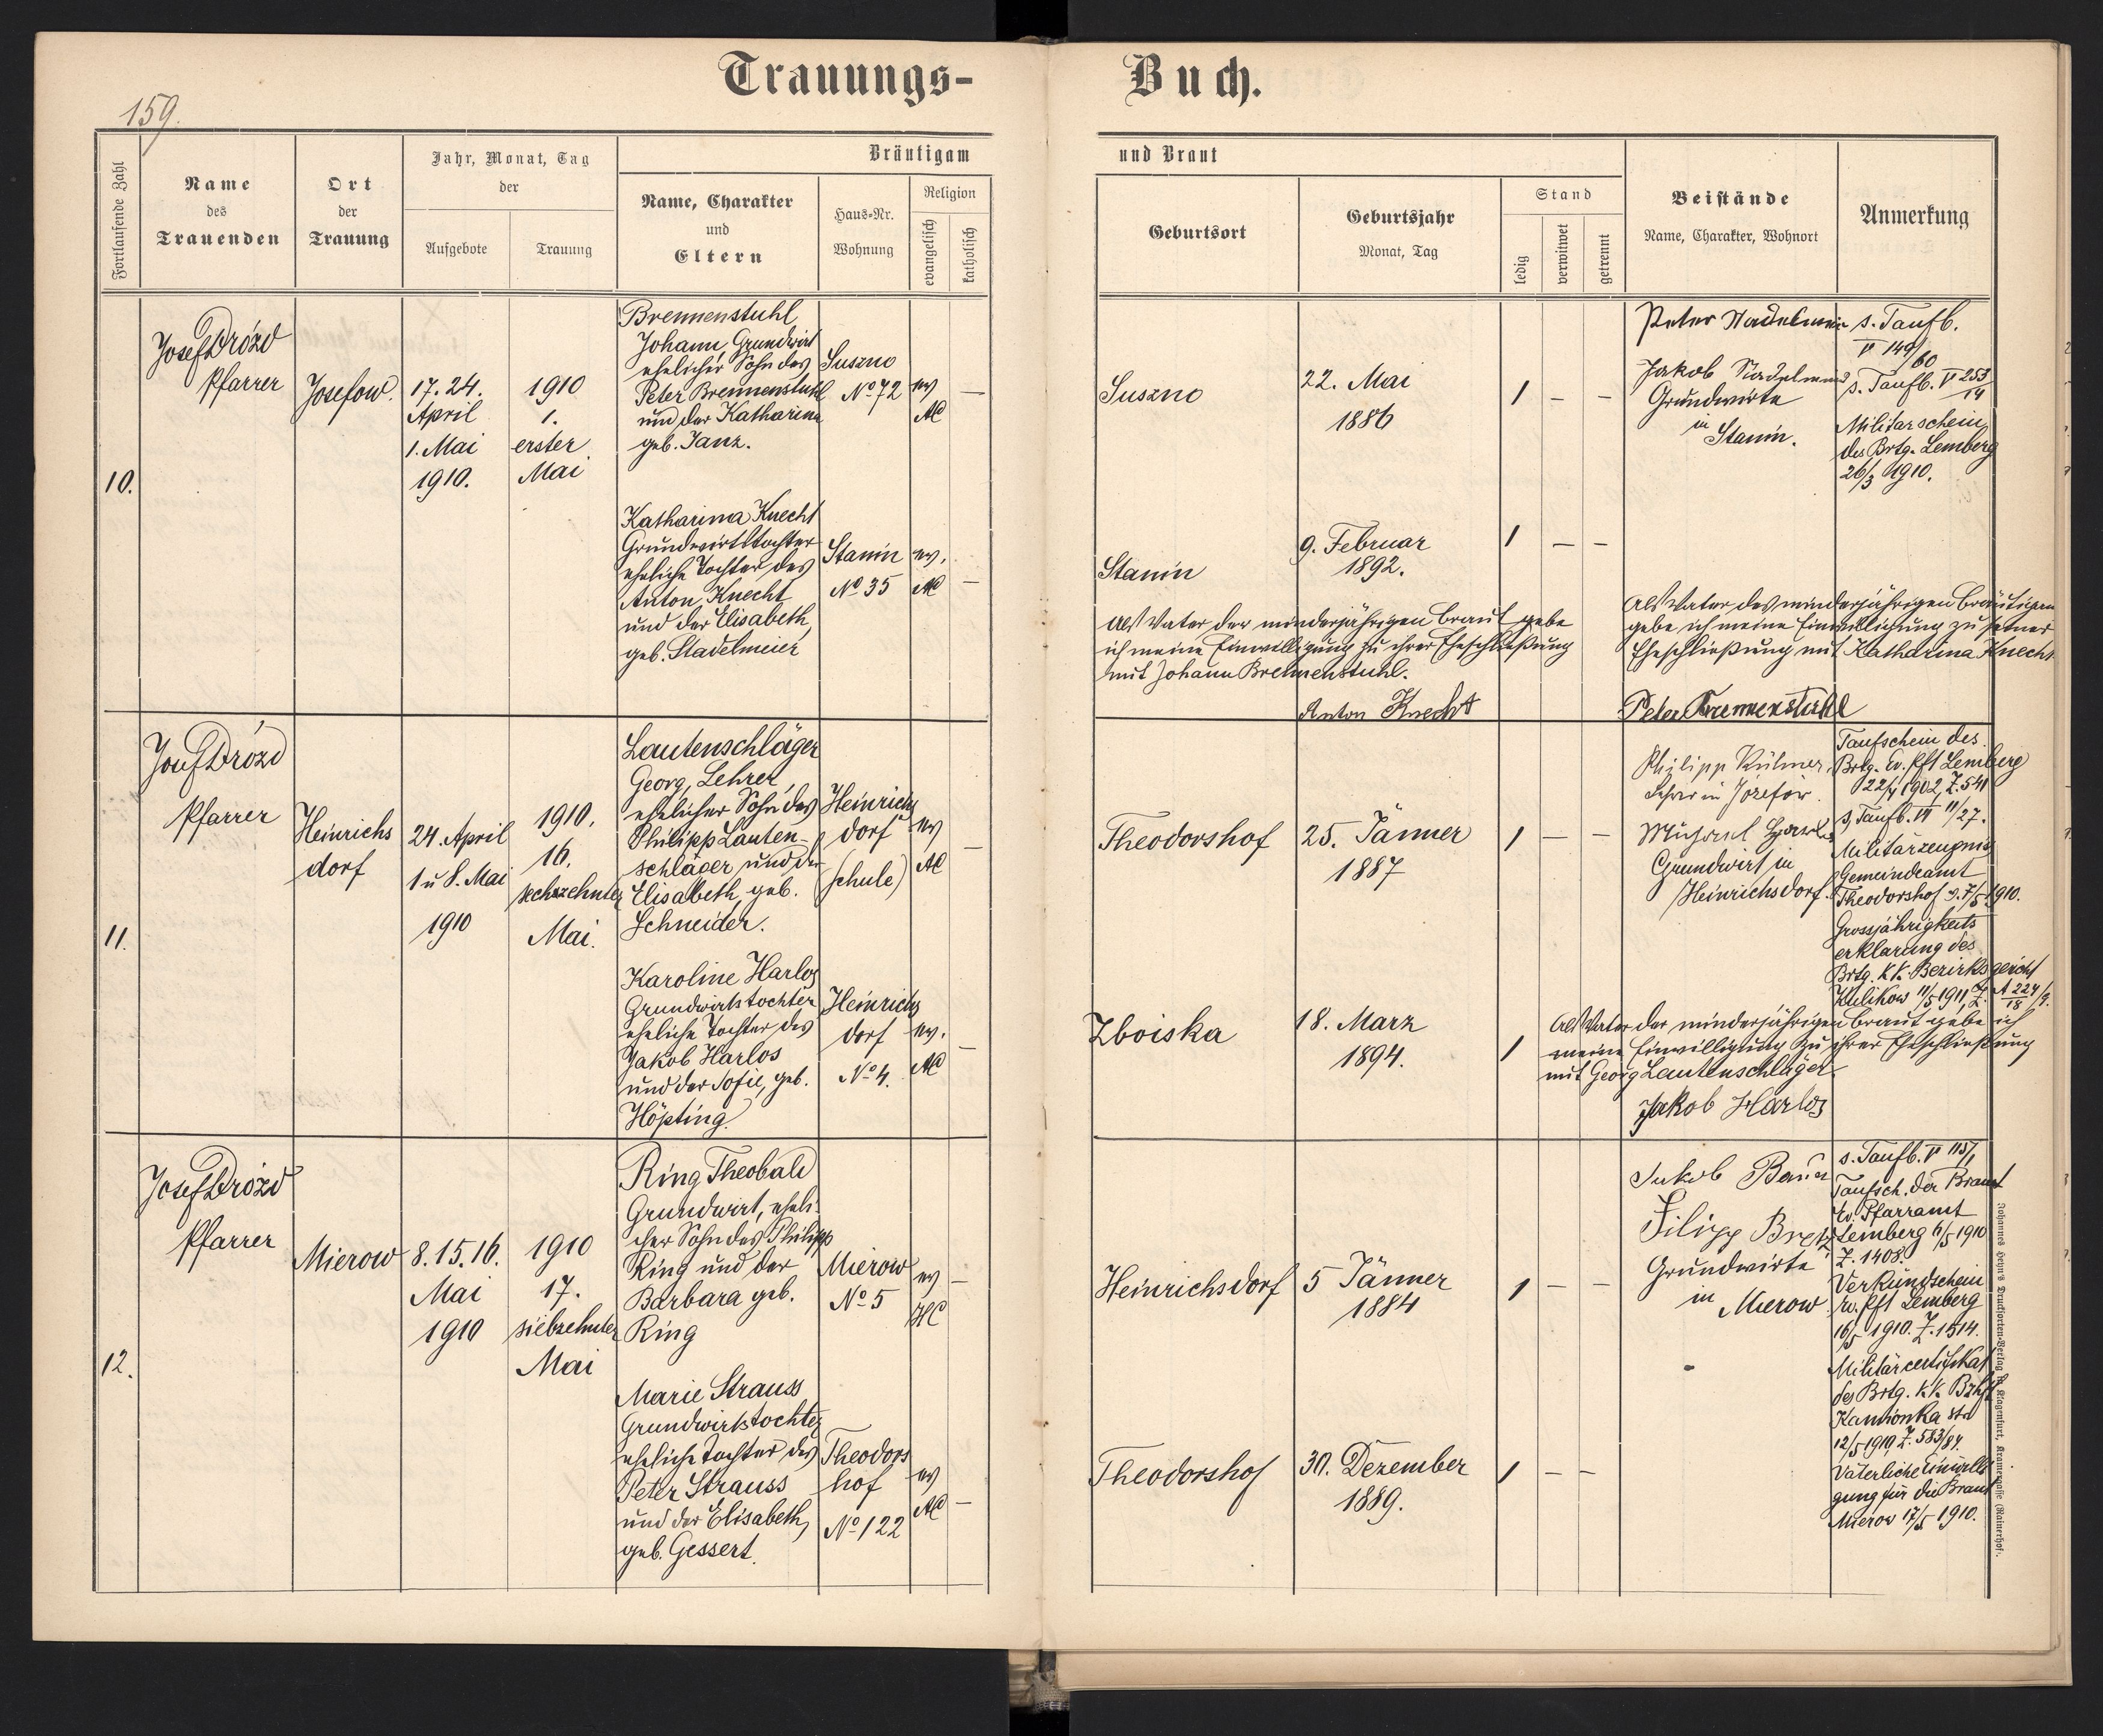 Trauungs-Buch.
159.
Fortlaufende Zahl
Name
des
Trauenden
Ort
der
Trauung
Jahr, Monat, Tag
der
Aufgebote
Trauung
Bräutigam
Name, Charakter
und
Eltern
Haus-Nr.
Wohnung
Religion
evangelisch
katholisch
und Braut
Geburtsort
Geburtsjahr
Monat, Tag
Stand
ledig
verwitwet
getrennt
Beistände
Name, Charakter, Wohnort
Anmerkung
10.
Josef Drózd
Pfarrer
Josefow.
17. 24.
April
1. Mai
1910.
1910
1.
erster
Mai
Brennenstuhl
Johann, Grundwirt
ehelicher Sohn des
Peter Brennenstuhl
und der Katharina
geb. Janz.
Suszno
No 72
ev
AC
—
Suszno
22. Mai
1886
1 — —
Peter Stadelmeier
Jakob
Grundwirte
in
Stanin.
s. Taufb.
V 149/60
s. Taufb. V 253/14
Militarschein
des Brtg. Lemberg
26/3 1910.
Katharina Knecht
Grundwirtstochter
eheliche Tochter des
Anton Knecht
und der Elisabeth,
geb. Stadelmeier
Stanin
No 35
ev.
AC
—
Stanin
9. Februar
1892.
1 — —
Als Vater der minderjährigen Braut gebe
ich meine Einwilligung zu ihrer Eheschließung
mit Johann Brennenstuhl.
Anton Knecht
Als Vater des minderjährigen Bräutigam
gebe ich meine Einwilligung zu seiner
Eheschließung mit Katharina Knecht
Peter Brennenstuhl
11.
Josef Drózd
Pfarrer
Heinrichs
dorf
24. April
1 u 8. Mai
1910
1910.
16.
sechszehnter
Mai.
Lautenschläger
Georg, Lehrer,
ehelicher Sohn des
Philipp Lauten-
schläger und der
Elisabeth, geb.
Schneider.
Heinrichs
dorf
(Schule)
ev
AC
—
Theodorshof
25. Jänner
1887
1 — —
Philipp
Lehrer in Józefów.
Michael
Grundwirt in
Heinrichsdorf.
Taufschein des
Brtg. Ev. Pft Lemberg
22/ 1902, Z. 541
s. Taufb. VI 11/27.
Militärzeugnis
Gemeindeamt
Theodorshof d. 7/5 1910.
Grossjährigkeits
erklärung des
Brtg. K.K. Bezirksgericht
Kulikow 11/5 1911, Z. A 224/15 /9.
Karoline Harlos
Grundwirtstochter
eheliche Tochter des
Jakob Harlos
und der Sofie, geb.
Höpting.
Heinrichs
dorf
No 4.
ev.
AC
—
Zboiska
18. Marz
1894.
1
Als Vater der minderjährigen Braut gebe ich
meine Einwilligung zu ihrer Eheschließung
mit Georg Lautenschläger
Jakob Harlos
12.
Josef Drózd
Pfarrer
Mierow
8. 15. 16.
Mai
1910
1910
17.
siebzehnter
Mai
Ring Theobald
Grundwirt, eheli-
cher Sohn des Philipp
Ring und der
Barbara geb.
Ring
Mierow
No 5
ev
HC
—
Heinrichsdorf
5 Jänner
1884
1 — —
Jakob
Filipp
Grundwirte
in
Mierow
s. Taufb. V 115/1
Taufsch. der Braut
Ev. Pfarramt
Lemberg 6/5 1910
Z. 1408.
Verkündschein
ev. Pft Lemberg
16/5 1910. Z. 1514.
Militärcertifikat
des Brtg. K.K. Bzhft
Kamionka str
12/5 1910 Z. 583/84.
Väterliche Einwilli
gung für die Braut
Mierow 17/5 1910.
Marie Strauss
Grundwirtstochter
eheliche Tochter des
Peter Strauss
und der Elisabeth,
geb. Gessert.
Theodors
hof
No 122
ev
AC
—
Theodorshof
30. Dezember
1889.
1 — —
Johannes Heyn's Drucksorten-Verlag in Klagenfurt, Kramergasse (Rainerhof).